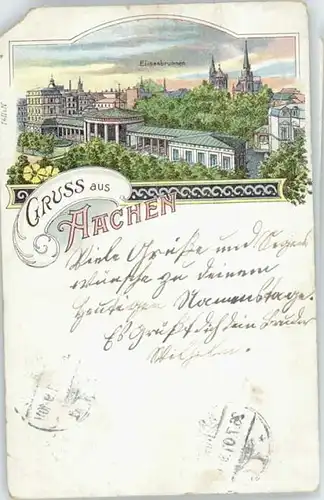 Elisenbrunnen
GRUSS AUS
AACHEN
Viele Grüße und Segens
wünsche zu deinem
heutigen Namenstage.
Es grüßt dich dein Bruder
Wilhelm.